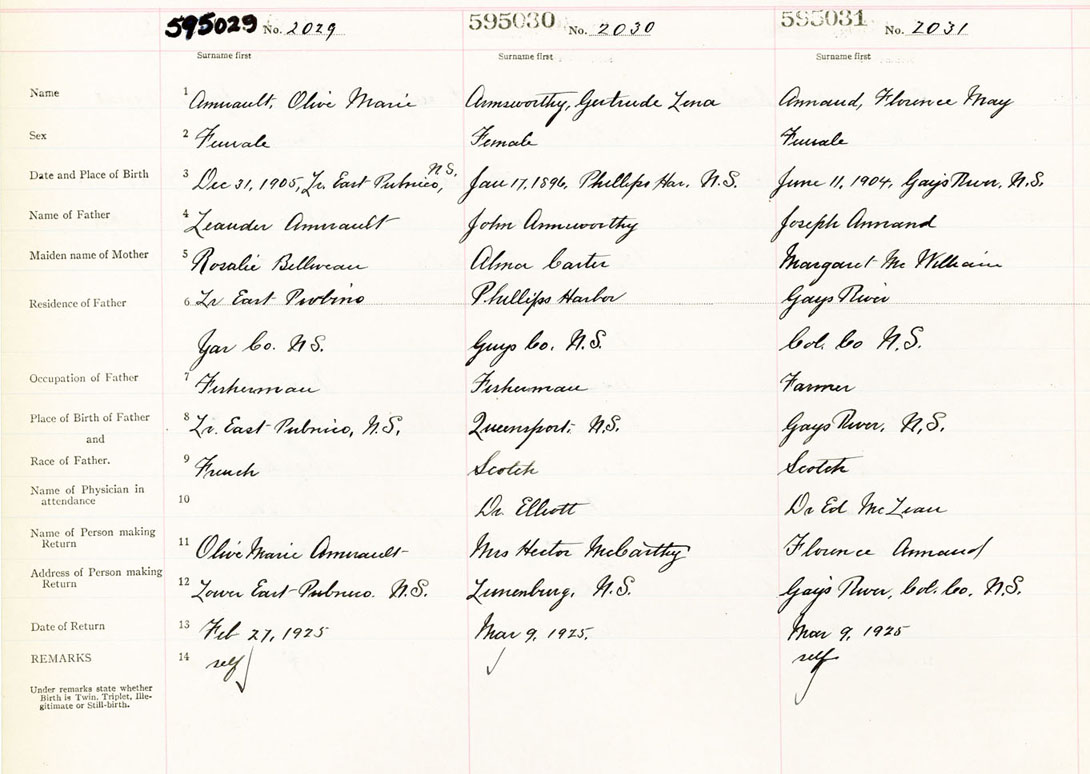 595029 No. 2029 595030 No. 2030 595031 No. 2031
Surname first Surname first Surname first
Name 1 Amirault, Olive Marie Armsworthy, Gertrude Lena Annand, Florence May
Sex 2 Female Female Female
N.S.
Date and Place of Birth 3 Dec 31, 1905, Lr. East Pubnico, Jan 17, 1896, Phillips Har. N.S. June 11, 1904, Gays River, N.S.
Name of Father 4 Leander Amirault John Armsworthy Joseph Annand
Maiden name of Mother 5 Rosalie Belliveau Alma Carter Margaret McWilliam
Residence of Father 6 Lr East Phillips Harbor Gays River
Yar Co. N.S. Guys Co. N.S. Col. Co N.S.
Occupation of Father 7 Fisherman Fisherman Farmer
Place of Birth of Father 8 Lr. East Pubnico, N.S. Queensport, N.S. Gays River, N.S.
and
Race of Father. 9 French Scotch Scotch
Name of Physician in
attendance 10 Dr. Elliott Dr Ed McLean
Name of Person making
Return 11 Olive Marie Amirault Mrs Hector McCarthy Florence Annand
Address of Person making
Return 12 Lower East Pubnico. N.S. Lunenburg, N.S. Gay's River, Col. Co. N.S.
Date of Return 13 Feb 27, 1925 Mar 9, 1925. Mar 9, 1925
REMARKS 14 self self
Under remarks state whether
Birth is Twin, Triplet, Ille-
gitimate or Still-birth.